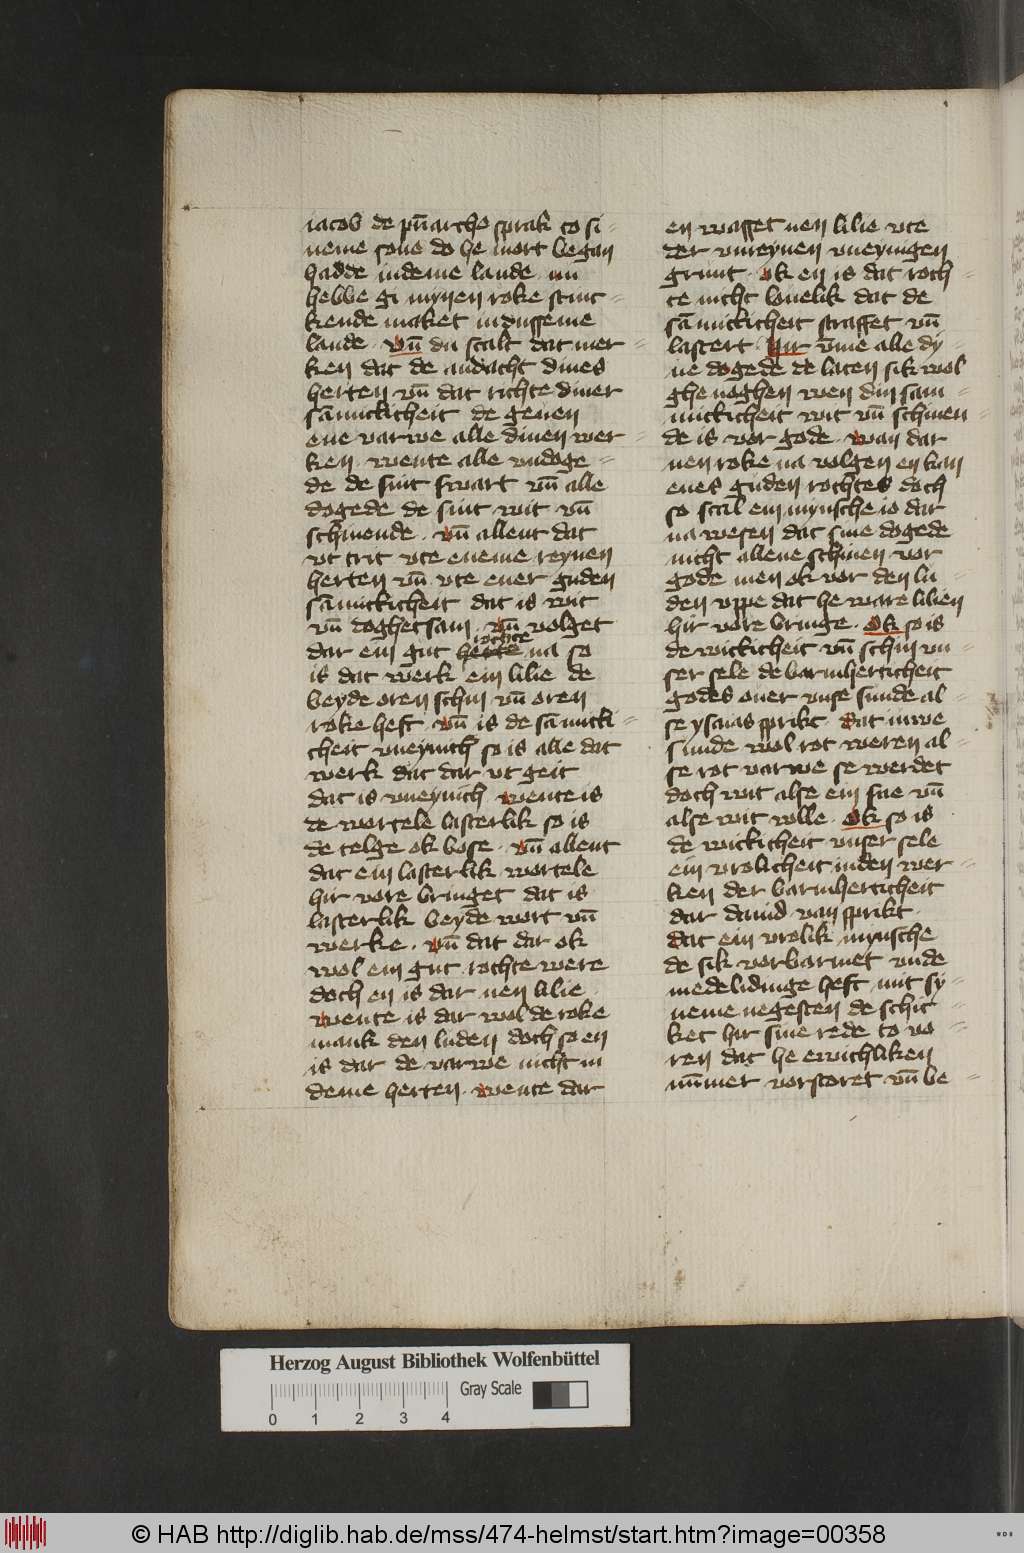 iacob de pūarche sprak to si=
neme sone do he mort began
hadde indeme lande nu
hebbe gi mynen roke stinc=
kende maket indusseme
lande. vn̄ du scalt dat mer=
ken dat de andacht dines
herten vn̄ dat richte diner
sāmiticheit de geuen
ene varwe alle dinen wer=
ken. wente alle vndoge=
de de sint swart vn̄ alle
dogede de sint wit vn̄
schinende. vn̄ allent dat
vt trit vte eneme reynen
herten vn̄ vte ener guden
sāmiticheit dat is wit
vn̄ doghetsam. vn̄ volget
dar ein gut rochte na so
is dat werk ein lilie de
beyde oren schin vn̄ oren
roke heft. vn̄ is de sāmiti=
cheit vneynich so is alle dat
werk dat dar vt geit
dat is vneynich. wente is
de wortele lasterlik so is
de telge ok bose. vn̄ allent
dat ein lasterlik wortele
hir vore bringet dat is
lasterlik beyde wort vn̄
werke. vn̄ dat dar ok
wol ein gut rochte were
doch en is dar nen lilie
wente is dar wol de roke
mank den luden doch so en
is dar de varwe nicht in
deme herten. wente dar
en wasset nen lilie vte
der vnreynen vneynigen
grunt. ok en is dat roch=
te nicht louelik dat de
sāmiticheit straffet vn̄
lastert. Hir vme alle dy=
ne dogede de laten sik wol
ghenoghen wen din sam=
miticheit wit vn̄ schinen=
de is vor gode. wan dar
nen roke na volgen en kan
enes guden rochtes doch
so scal ein mynsche io dar
na wesen dat sine dogede
nicht allene schinen vor
gode men ok vor den lu=
den vppe dat he ware lilien
hir vore bringe. Ok so is
de witticheit vn̄ schin vn=
ser sele de barmherticheit
godes ouer vnse sunde al=
se ysaias sprikt. dat iuwe
sunde wol rot weren al=
se rot varwe se werdet
doch wit alse ein sne vn̄
alse wit wolle. Ok so is
de witticheit vnser sele
ein vrolicheit inden wer=
ken der barmherticheit
dar dauid van sprikt.
dat ein vrolik mynsche
de sik vorbarmet vnde
medelidinge heft mit sy=
neme negesten de schic=
ket hir sine rede to vo=
ren dat he ewichliken
nūmer vorstoret vn̄ be=
Herzog August Bibliothek Wolfenbüttel
Gray Scale
0 1 2 3 4
© HAB http://diglib.hab.de/mss/474-helmst/start.htm?image=00358